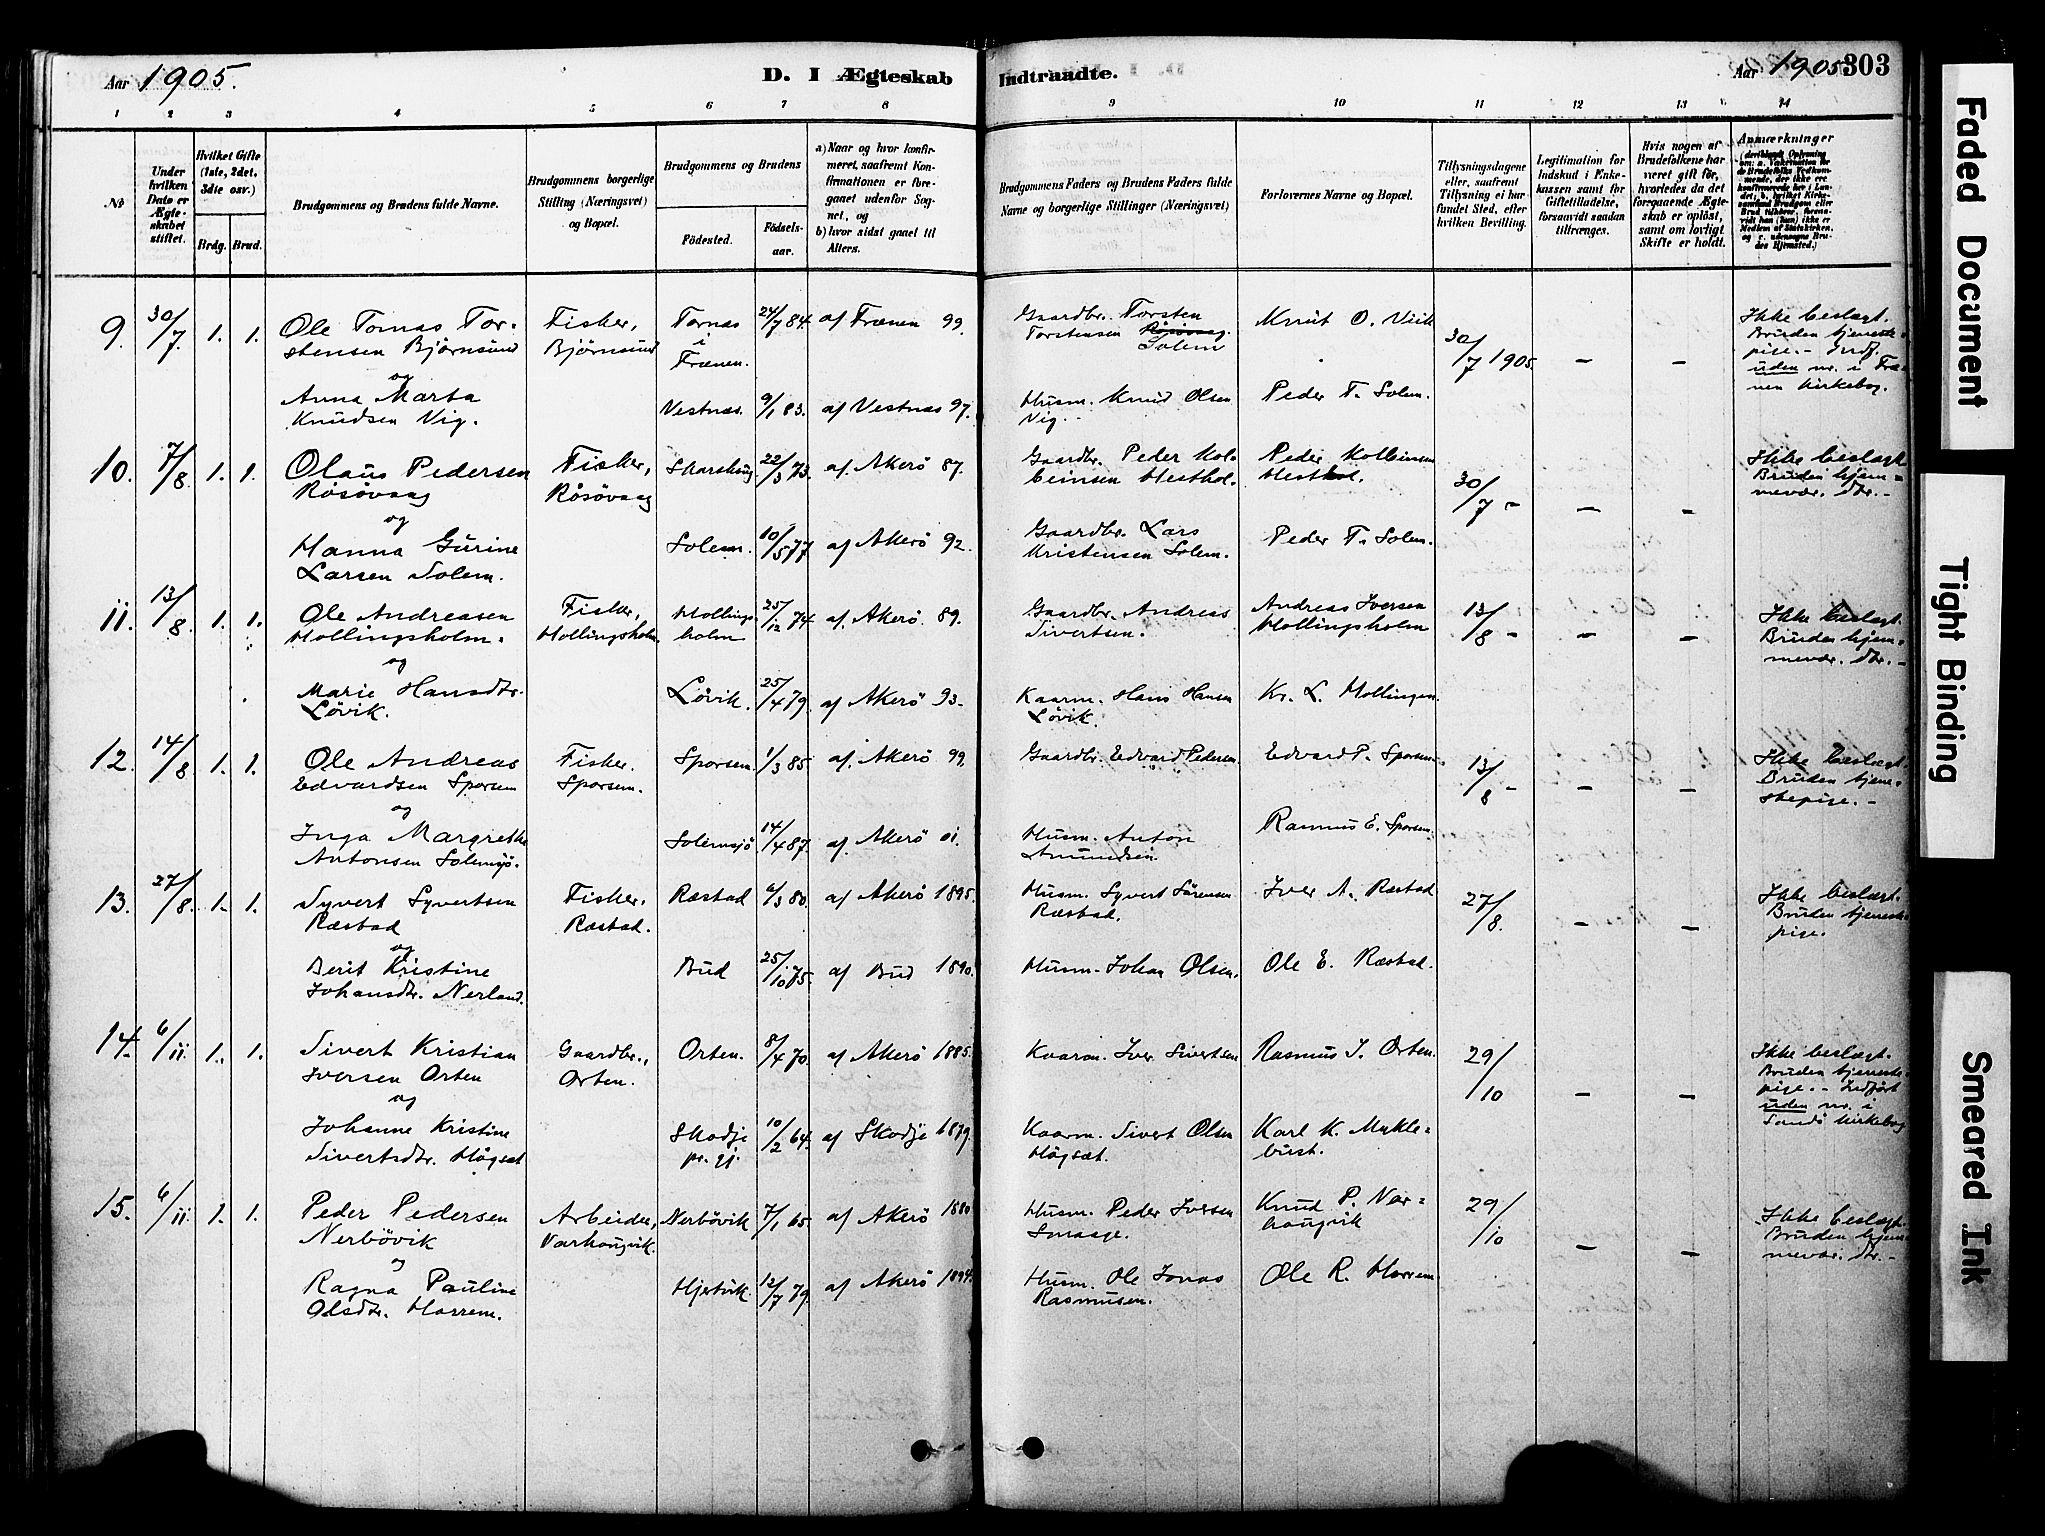 Aar 1905.
D. I Ægteskab
Indtraadte.
Aar 1905 303
1 2 3 4 5 6 7 8 9 10 11 12 13 14
No
Under hvilken Dato er Ægteskabet stiftet.
Hvilket Gifte (1ste, 2det, 3die osv.)
Brdg. Brud.
Brudgommens og Brudens fulde Navne.
Brudgommens borgerlige Stilling (Næringsvei) og Bopæl.
Brudgommens og Brudens
Födested.
Födselsaar.
a) Naar og hvor konfirmeret, saafremt Konfirmationen er foregaaet udenfor Sognet, og
b) hvor sidst gaaet til Alters.
Brudgommens Faders og Brudens Faders fulde Navne og borgerlige Stillinger (Næringsvei)
Forlovernes Navne og Bopæl.
Tillysningsdagene eller, saafremt Tillysning ei har fundet Sted, efter hvilken Bevilling.
Legitimation for Indskud i Enkekassen samt for Giftetilladelse, forsaavidt saadan tiltrænges.
Hvis nogen af Brudefolkene har været gift før, hvorledes da det foregaaende Ægteskab er oplöst, samt om lovligt Skifte er holdt.
Anmærkninger
9. 30/7. 1. 1. Ole Tomas Torstensen Björnsund
Fisker, Björnsund
Tornas i Frænen.
24/7 84. af Frænen 99.
Gaardbr. Torsten Torstensen Rösövaag. Solem
Knut O. Viik
30/7 1905. – –
Ikke beslægt. Bruden tjenestepige. – Indf. uden nr. i Frænen kirkebog.
og
Anna Marta Knudsen Vig.
Vestnæs. 9/1 83. af Vestnæs 97.
Husm. Knud Olsen Vig.
Peder T. Solem.
10. 7/8 1. 1. Olaus Pedersen Rösövaag
Fisker, Rösövaag
Skarshaug 22/3 73. af. Akerö 87.
Gaardbr. Peder Kolbeinsen Hesthol.
Peder Kolbeinsen Hesthol.
30/7 – – –
Ikke beslægt Bruden hjemmevær. dtr. –
og
Hanna Gurine Larsen Solem.
Solem. 10/5 77. af Akerö 92.
Gaardbr. Lars Kristensen Solem.
Peder T. Solem.
11. 13/8 1. 1. Ole Andreassen Hollingsholm.
Fisker, Hollingsholm
Hollingsholm 25/12 74 af. Akerö. 89.
Gaardbr. Andreas Sivertsen.
Andreas Iversen Hollingsholm
13/8 – – –
Ikke beslægt. Bruden hjemmevær. dtr. –
og
Marie Hansdtr. Lövik.
Lövik. 25/4 79. af Akerö 93.
Kaarm. Hans Hansen Lövik.
Kr. L. Hollingen.
12. 14/8 1. 1. Ole Andreas Edvardsen Sporsem
Fisker. Sporsem.
Sporsem. 1/3 85. af. Akerö 99.
Gaardbr. Edvard Pedersen.
Edvard P. Sporsem.
13/8 – – –
Ikke beslægt. Bruden tjenestepige. –
og
Inga Margrethe Antonsen Solemsjö.
Solemsjö. 14/4 87. af. Akerö 01.
Husm. Anton Amundsen.
Rasmus E. Sporsem.
13. 27/8. 1. 1. Syvert Syvertsen Ræstad
Fisker. Ræstad.
Ræstad 6/3 80. af Akerö 1895.
Husm. Syvert Sörensen Ræstad.
Iver A. Ræstad
27/8. – –
Ikke beslægt. Bruden tjenestepige.
og
Berit Kristine Johansdtr. Nerland.
Bud 25/10 75. af Bud 1890.
Husm. Johan Olsen.
Ole E. Ræstad.
14. 6/11. 1. 1. Sivert Kristian Iversen Orten
Gaardbr., Orten.
Orten. 8/4 70. af Akerö 1885.
Kaarm. Iver Sivertsen
Rasmus I. Orten.
29/10 – –
Ikke beslægt. Bruden tjenestepige. – Indfört uden nr. i Sandö kirkebog
og
Johanne Kristine Sivertsdtr. Högset
Skodje pr. gj. 10/2 64. af Skodje 1879.
Kaarm. Sivert Olsen Högsæt.
Karl K. Myklebust.
15. 6/11. 1. 1. Peder Pedersen Nerbövik
Arbeider, Varhaugvik.
Nerbövik 7/1 65. af Akerö 1880
Husm. Peder Iversen Smaage.
Knud P. Varhaugvik
29/10 – –
Ikke beslægt. Bruden hjemmevær. dtr. –
og
Ragna Pauline Olsdtr. Harrem.
Hjertvik. 12/7 79. af Akerö 1894.
Husm. Ole Jonas Rasmusen.
Ole R. Harrem
Faded Document
Tight Binding
Smeared Ink